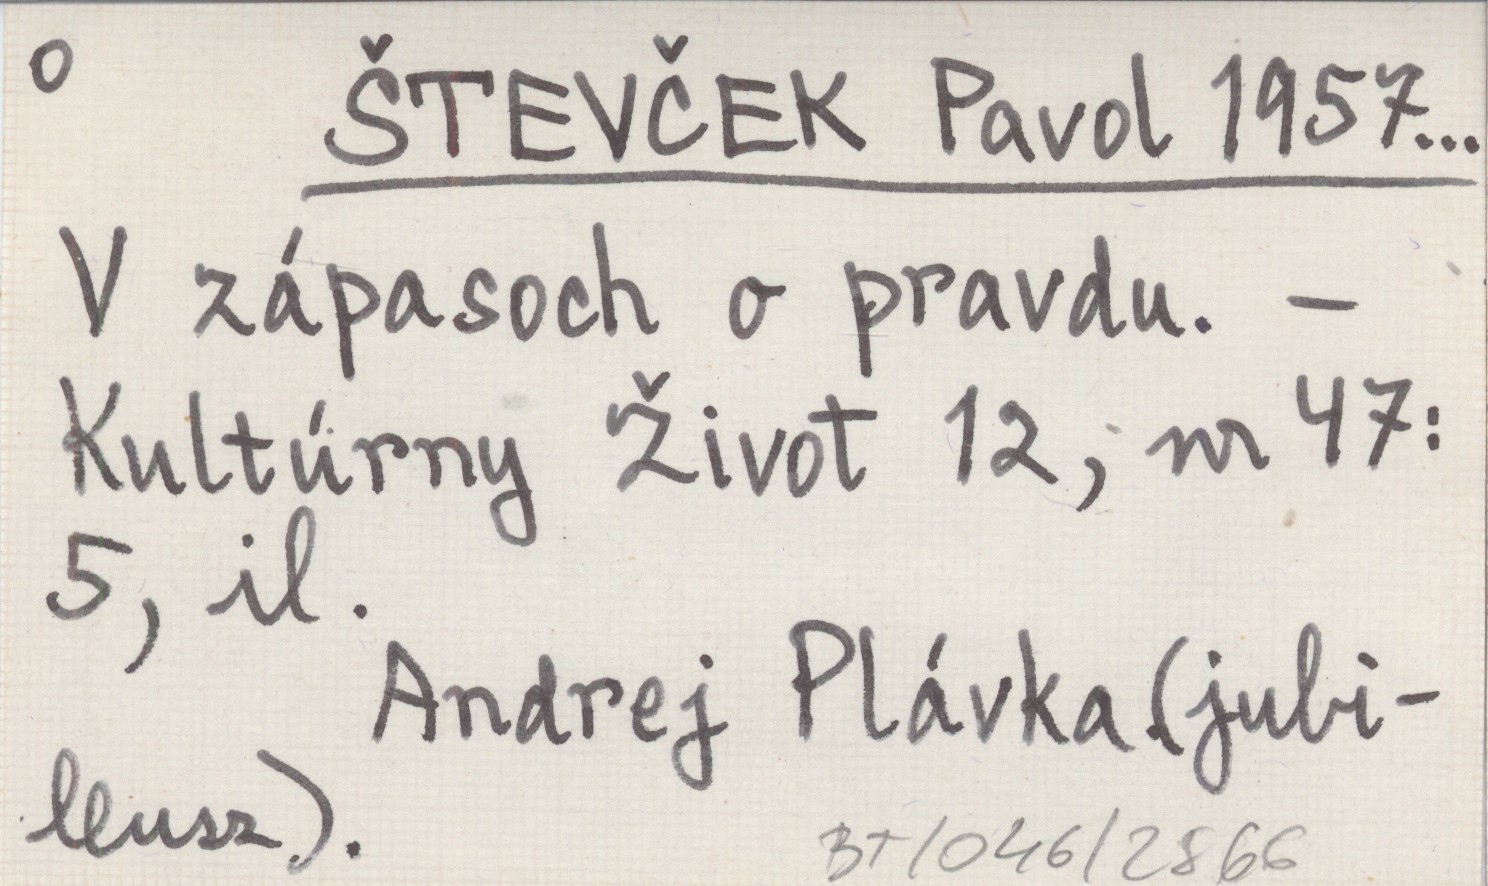 o ŠTEVČEK Pavol 1957...
V zápasoch o pravdu. –
Kultúrny Život 12, nr 47:
5, il.
Andrej Plávka (jubi-
leusz).
BT/046/2866